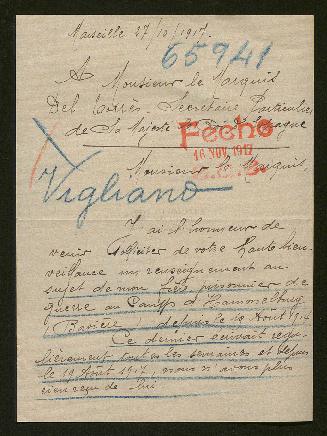 Marseille 27/10/1917.
65941
A
Monsieur le Marquis
Del Torrès. Secrétaire Particulier
de Sa Majesté le Roi d'Espagne
Fecho
16 NOV. 1917
Monsieur le Marquis
Vigliano
J'ai l'honneur de
venir solliciter de votre haute bien-
veillance un renseignement au
sujet de mon fils prisonnier de
guerre au Camp d'Hammelburg
Bavière depuis le 10 Août 1914
Ce dernier écrivait régu-
lièrement toutes les semaines et depuis
le 19 Août 1917, nous n'avons plus
rien reçu de lui